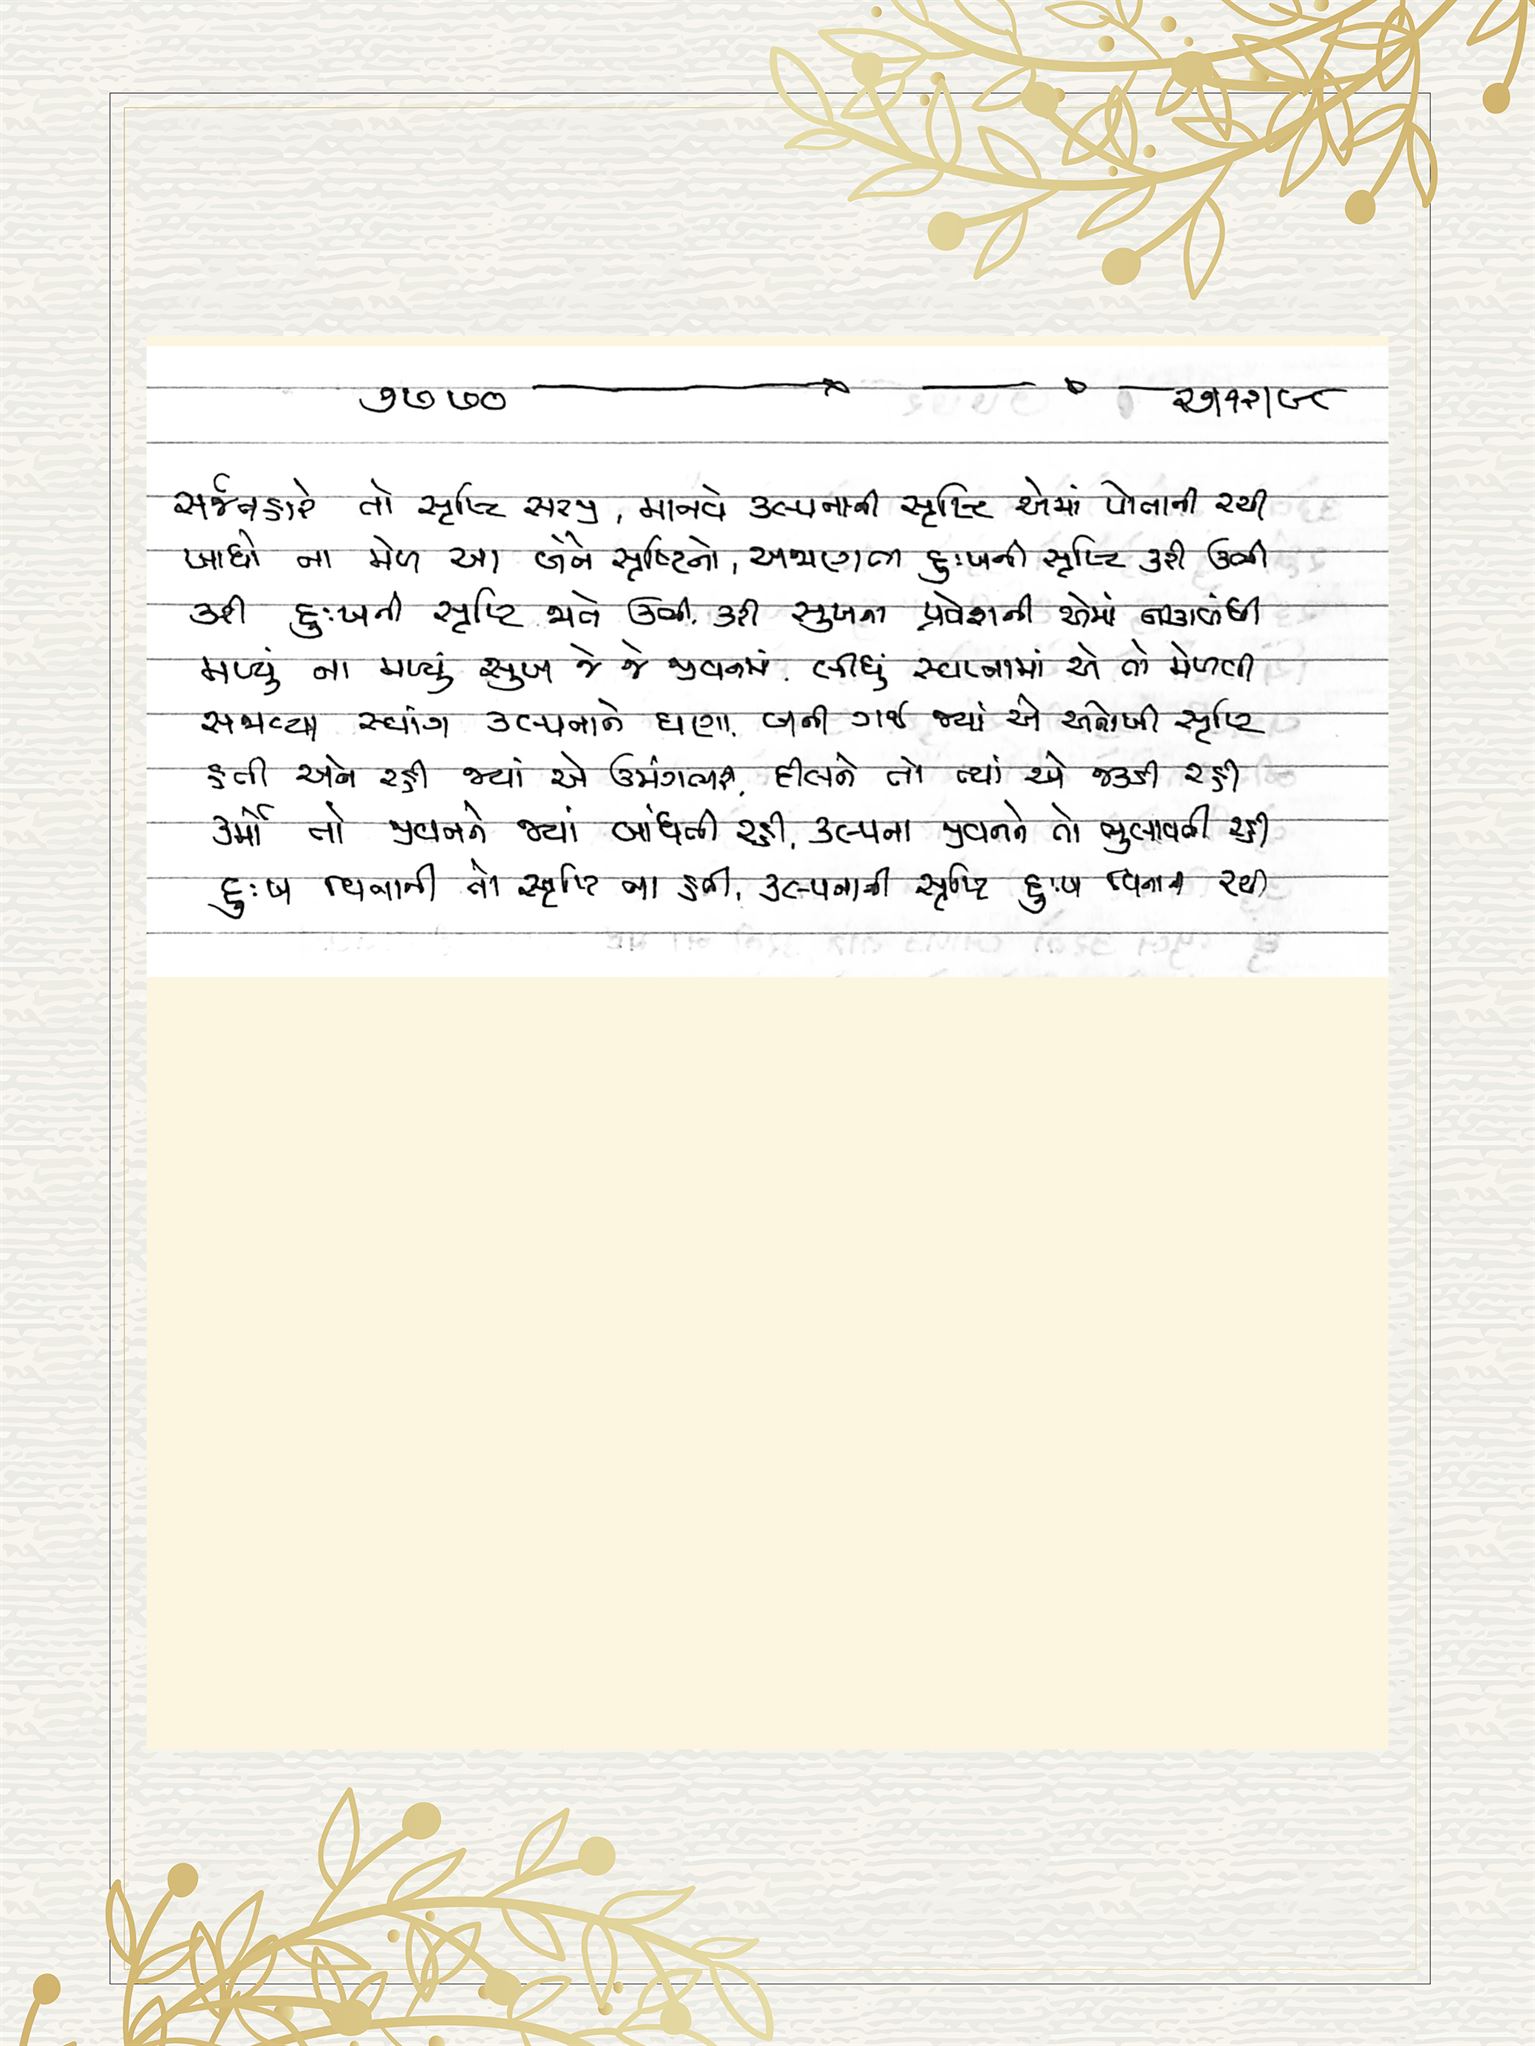 ૭૭૭૦ ૨૭/૧૨/૯૮
સર્જનહારે તો સૃષ્ટિ સરજી, માનવે કલ્પનાની સૃષ્ટિ એમાં પોતાની રચી
ખાધો ના મેળ આ બંને સૃષ્ટિનો, અજાણતા દુઃખની સૃષ્ટિ કરી ઊભી
કરી દુઃખની સૃષ્ટિ જાતે ઊભી, કરી સુખના પ્રવેશની એમાં નાકાબંધી
મળ્યું ના મળ્યું સુખ જે જે જીવનમાં, લીધું સ્વપ્નામાં એ તો મેળવી
સજાવ્યા સ્વાંગ કલ્પનાને ઘણા, બની ગઈ જ્યાં એ અનોખી સૃષ્ટિ
હતી અને રહી જ્યાં એ ઉમંગભરી, દીલને તો ત્યાં એ જકડી રહી
કર્મો તો જીવનને જ્યાં બાંધતી રહી, કલ્પના જીવનને તો ભુલાવતી રહી
દુઃખ વિનાની તો સૃષ્ટિ ના હતી, કલ્પનાની સૃષ્ટિ દુઃખ વિનાની રચી